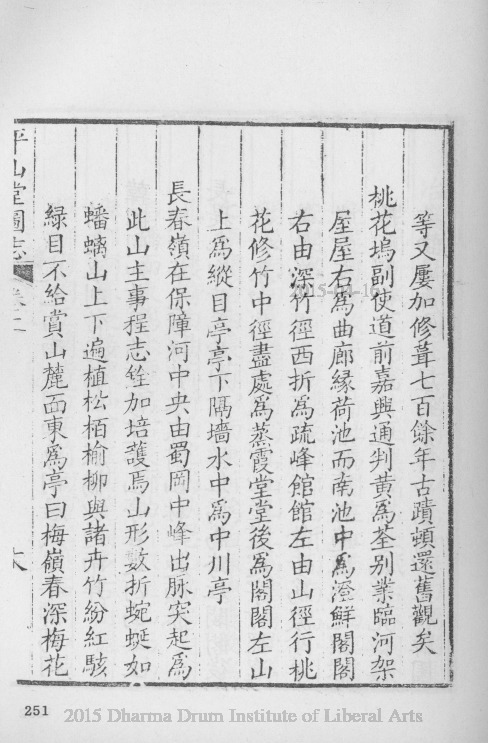 等又屢加修葺七百餘年古蹟頓還舊觀矣
桃花塢副使道前嘉興通判黃為荃别業臨河架
屋屋右為曲廊緣荷池而南池中為澄鮮閣閣
右由深竹徑西折為疏峰館館左由山徑行桃
花修竹中徑盡處為蒸霞堂堂後為閣閣左山
上為縱目亭亭下隔墻水中為中川亭
長春嶺在保障河中央由蜀岡中峰出脉突起為
此山主事程志銓加培護焉山形數折蜿蜒如
蟠螭山上下遍植松栢榆柳與諸卉竹紛紅駭
緑目不給賞山麓面東為亭曰梅嶺春深梅花
平山堂圖志 卷二
2015-04-10
251
2015 Dharma Drum Institute of Liberal Arts